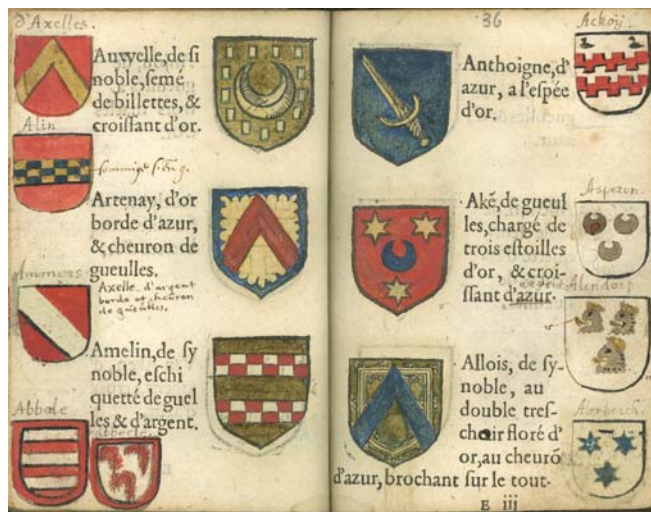 d'Axelles.
Auwelle, de si
noble, semé
de billettes, &
croissant d'or.
Alin
Artenay, d'or
borde d'azur,
& cheuron de
gueulles.
Axelle d'argent
borde et cheuron
de gueulles.
Ammers
Amelin, de sy
noble, eschi
quetté de guel
les & d'argent.
Abbale
36
Ackoij.
Anthoigne, d'
azur, a l'espée
d'or.
Aspezen.
Aké, de gueul
les, chargé de
trois estoilles
d'or, & croi-
ssant d'azur.
Alendorp
Allois, de sy-
noble, au
double tres-
choir floré d'
or, au cheurõ
d'azur, brochant sur le tout.
E iij